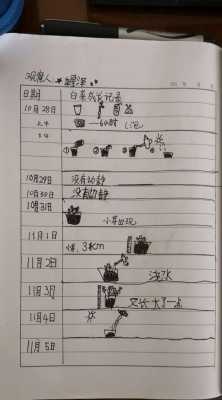 观察人
日期 白菜成长记录
10月28日
上午
①②③④
10月29日 没有动静
10月30日 没有动静
10月31日
小芽出现
11月1日
11月2日
浇水
11月3日
又长大了一点
11月4日
11月5日